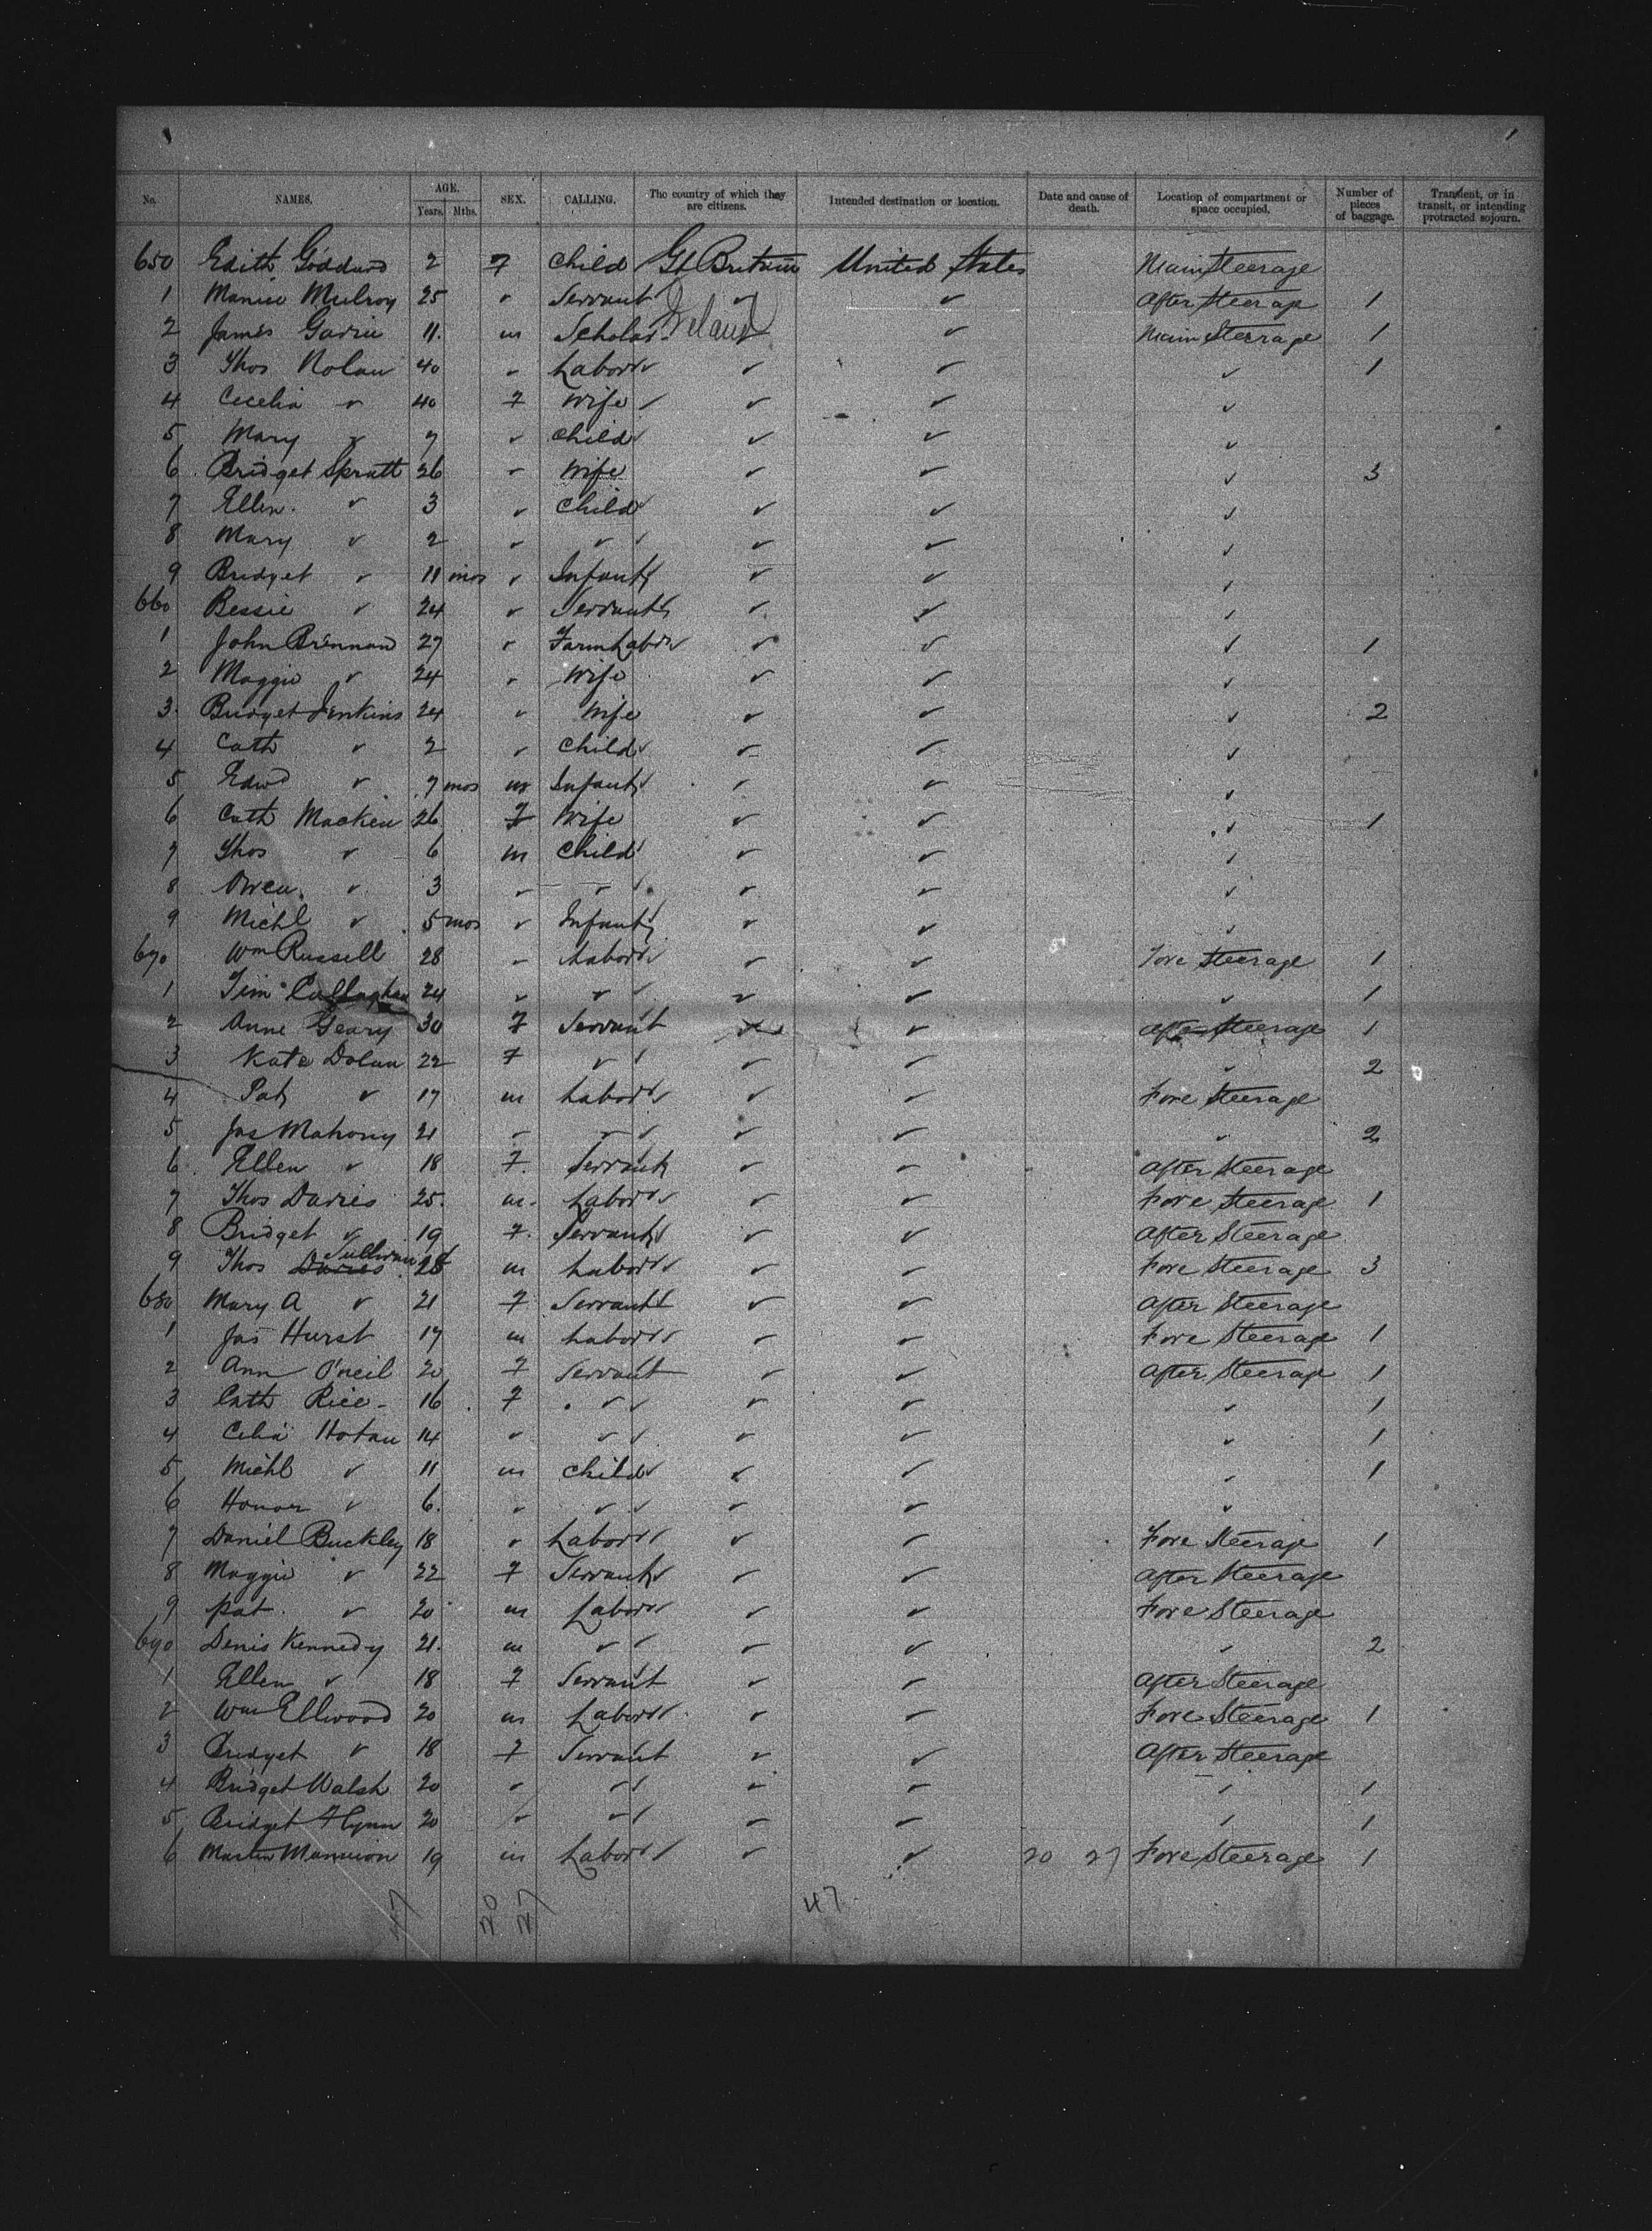 No. NAMES. AGE. Years. Mths. SEX. CALLING. The country of which they are citizens. Intended destination or location. Date and cause of death. Location of compartment or space occupied. Number of pieces of baggage. Transient, or in transit, or intending protracted sojourn.
650 Edith Goddard 2 F Child Gt Britain United States Main Steerage
1 Mulroy 25 ✓ Servant ✓ ✓ After Steerage 1
2 James 11 m Scholar Ireland ✓ Main Steerage 1
3 Thos Nolan 40 ✓ Labor ✓ ✓ ✓ 1
4 Cecelia ✓ 40 F Wife ✓ ✓ ✓ ✓
5 Mary ✓ 7 ✓ Child ✓ ✓ ✓
6 Bridget Spratt 26 ✓ Wife ✓ ✓ ✓ 3
7 Ellen ✓ 3 ✓ Child ✓ ✓ ✓
8 Mary ✓ 2 ✓ ✓ ✓ ✓ ✓ ✓
9 Bridget ✓ 11 mos ✓ Infant ✓ ✓ ✓
660 Bessie ✓ 24 ✓ Servant ✓ ✓ ✓
1 John Brennan 27 ✓ Farm Labr ✓ ✓ ✓ 1
2 Maggie ✓ 24 ✓ Wife ✓ ✓ ✓
3 Bridget Jenkins 24 ✓ Wife ✓ ✓ ✓ 2
4 Cath ✓ 2 ✓ Child ✓ ✓ ✓
5 Edwd ✓ 7 mos m Infant ✓ ✓ ✓
6 Cath Macken 26 F Wife ✓ ✓ ✓ 1
7 Thos ✓ 6 m Child ✓ ✓ ✓
8 Owen ✓ 3 ✓ ✓ ✓ ✓ ✓ ✓
9 Michl ✓ 5 mos ✓ Infant ✓ ✓ ✓
670 Wm Russell 28 ✓ Labor ✓ ✓ Fore Steerage 1
1 Tim Callaghan 24 ✓ ✓ ✓ ✓ ✓ ✓ 1
2 Anne Geary 30 F Servant ✓ ✓ After Steerage 1
3 Kate Dolan 22 F ✓ ✓ ✓ ✓ ✓ 2
4 Pat ✓ 17 m Labor ✓ ✓ Fore Steerage
5 Jas Mahony 21 ✓ ✓ ✓ ✓ ✓ ✓ 2
6 Ellen ✓ 18 F Servant ✓ ✓ After Steerage
7 Thos Davies 25 m Labor ✓ ✓ Fore Steerage 1
8 Bridget ✓ 19 F Servant ✓ ✓ After Steerage
9 Thos Davies Sullivan 28 m Labor ✓ ✓ Fore Steerage 3
680 Mary A ✓ 21 F Servant ✓ ✓ After Steerage
1 Jas Hurst 17 m Labor ✓ ✓ Fore Steerage 1
2 Ann O'neil 20 F Servant ✓ ✓ After Steerage 1
3 Cath Rice 16 F ✓ ✓ ✓ ✓ ✓ 1
4 Celia Hotan 14 ✓ ✓ ✓ ✓ ✓ ✓ 1
5 Michl ✓ 11 m Child ✓ ✓ ✓ 1
6 Honor ✓ 6 ✓ ✓ ✓ ✓ ✓ ✓
7 Daniel Buckley 18 ✓ Labor ✓ ✓ Fore Steerage 1
8 Maggie ✓ 22 F Servant ✓ ✓ After Steerage
9 Pat ✓ 20 m Labor ✓ ✓ Fore Steerage
690 Denis Kennedy 21 m ✓ ✓ ✓ ✓ ✓ 2
1 Ellen ✓ 18 F Servant ✓ ✓ After Steerage
2 Wm Ellwood 20 m Labor ✓ ✓ Fore Steerage 1
3 Bridget ✓ 18 F Servant ✓ ✓ After Steerage
4 Bridget Walsh 20 ✓ ✓ ✓ ✓ ✓ ✓ 1
5 Bridget Flynn 20 ✓ ✓ ✓ ✓ ✓ ✓ 1
6 Martin Mannion 19 m Labor ✓ ✓ 20 27 Fore Steerage 1
47 20 27 47